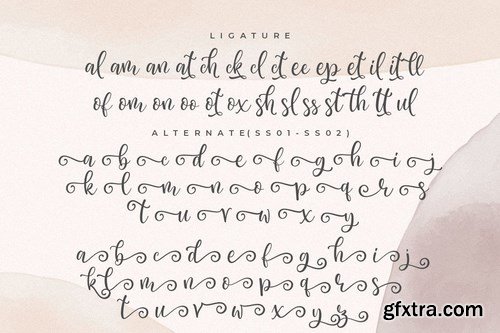 LIGATURE
al am an at ch ck cl ct ee ep et il it ll
of om on oo ot ox sh sl ss st th tt ul
ALTERNATE(SS01-SS02)
a b c d e f g h i j
k l m n o p q r s
t u v w x y
a b c d e f g h i j
k l m n o p q r s
t u v w x y z
gfxtra.com